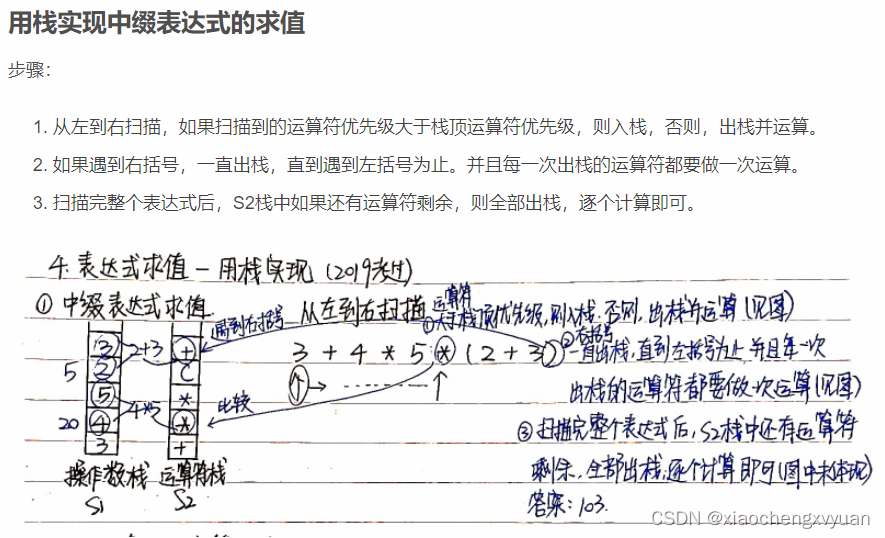 用栈实现中缀表达式的求值
步骤：
1. 从左到右扫描，如果扫描到的运算符优先级大于栈顶运算符优先级，则入栈，否则，出栈并运算。
2. 如果遇到右括号，一直出栈，直到遇到左括号为止。并且每一次出栈的运算符都要做一次运算。
3. 扫描完整个表达式后，S2栈中如果还有运算符剩余，则全部出栈，逐个计算即可。
4. 表达式求值－用栈实现 (2019考过)
① 中缀表达式求值 从左到右扫描 运算符
①大于栈顶优先级,则入栈.否则,出栈并运算(见图)
遇到右括号
3 + 4 * 5 * (2 + 3) ②右括号
一直出栈,直到左括号为止 并且每一次
出栈的运算符都要做一次运算(见图)
③ 扫描完整个表达式后,S2栈中还有运算符
剩余,全部出栈,逐个计算即可(图中未体现)
答案:103.
比较
3 2+3 +
5 2 (
5 *
20 4 4*5 *
3 +
操作数栈 运算符栈
S1 S2
CSDN @xiaochengxvyuan